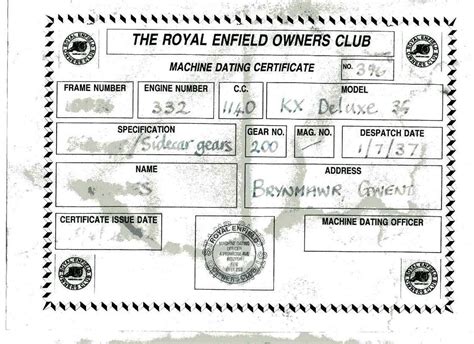 ROYAL ENFIELD OWNERS CLUB
ROYAL ENFIELD OWNERS CLUB
THE ROYAL ENFIELD OWNERS CLUB
MACHINE DATING CERTIFICATE
NO. 396
FRAME NUMBER
ENGINE NUMBER
C.C.
MODEL
332
1140
KX Deluxe
SPECIFICATION
GEAR NO.
MAG. NO.
DESPATCH DATE
/Sidecar gears
200
1/7/37
NAME
ADDRESS
BRYNMAWR, GWENT
CERTIFICATE ISSUE DATE
MACHINE DATING OFFICER
ROYAL ENFIELD
MACHINE DATING
OFFICER
OWNERS CLUB
ROYAL ENFIELD OWNERS CLUB
ROYAL ENFIELD OWNERS CLUB